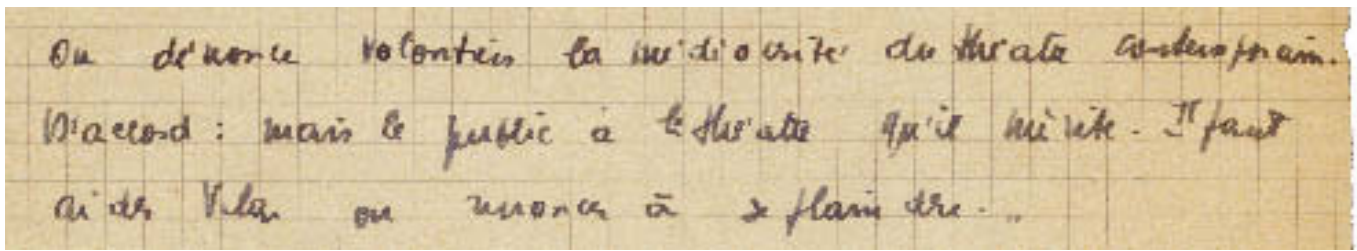 On dénonce volontiers la médiocrité du théâtre contemporain.
D'accord : mais le public a le théâtre qu'il mérite. Il faut
aider Vilar ou renoncer à se plaindre...